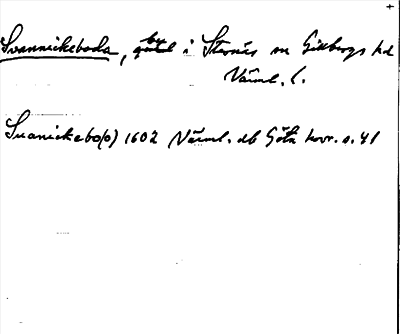 +
Svannickeboda, by i Stavnäs sn Gillbergs hd
Värml. l.
Svanickebo(o) 1602 Värml. db Göta hovr. s. 41